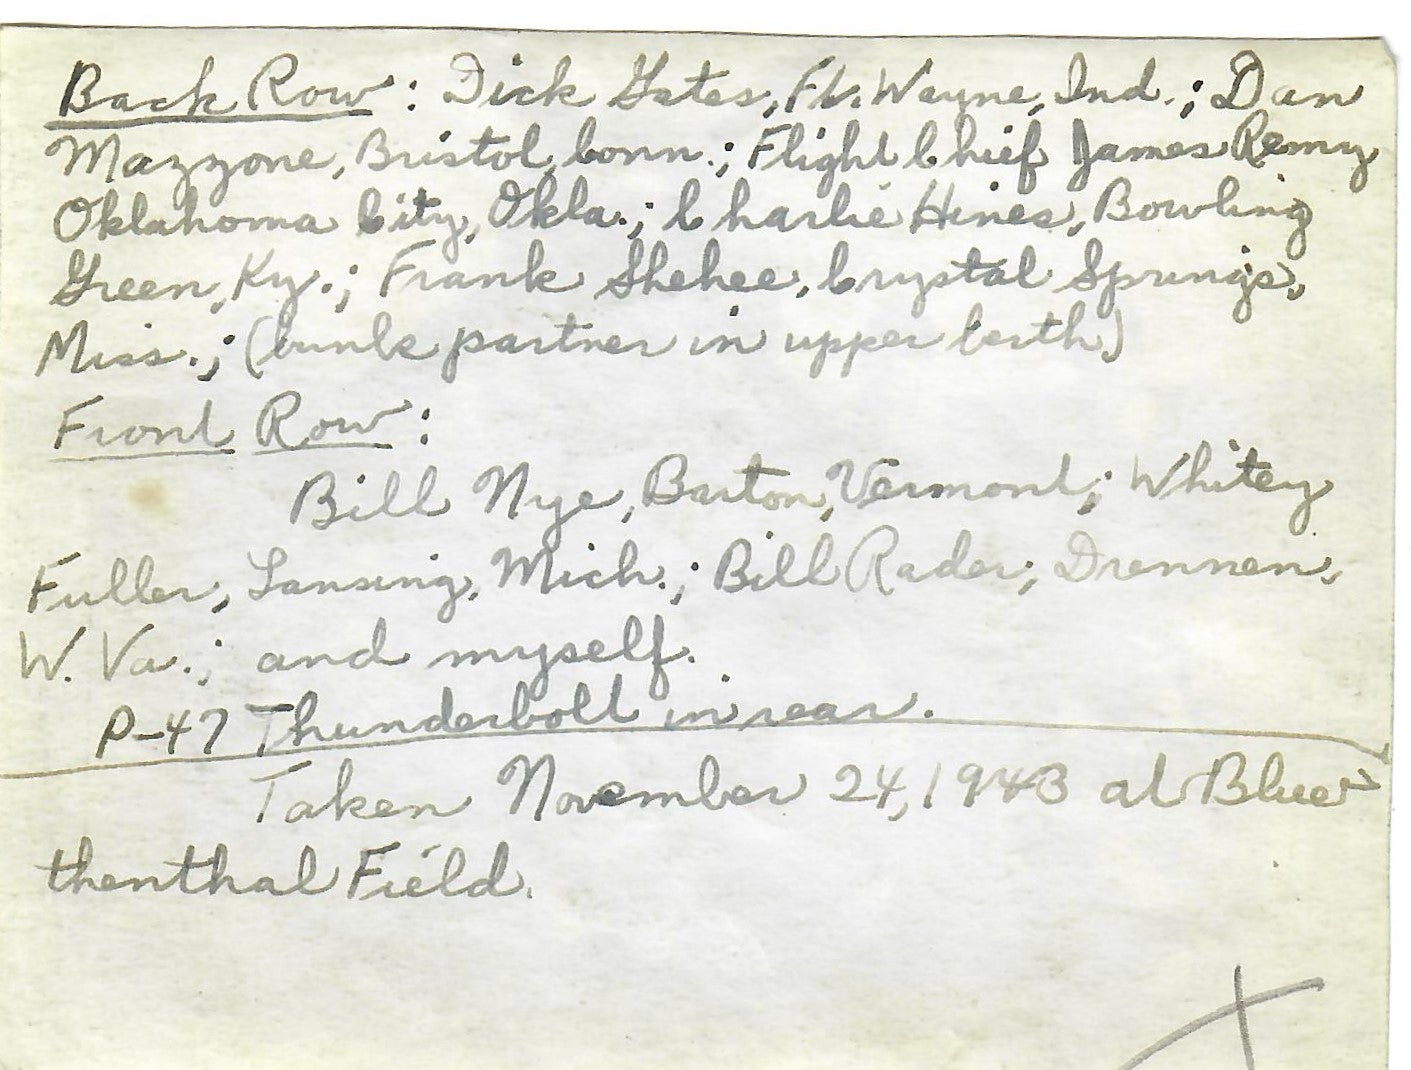 Back Row: Dick Gates, Ft. Wayne, Ind.; Dan
Mazzone, Bristol, Conn.; Flight Chief James Remy
Oklahoma City, Okla.; Charlie Hines, Bowling
Green, Ky.; Frank Shehee, Crystal Springs,
Miss.; (bunk partner in upper berth)
Front Row:
Bill Nye, Barton, Vermont; Whitey
Fuller, Lansing, Mich.; Bill Rader, Drennen,
W. Va.; and myself.
P-47 Thunderbolt in rear.
Taken November 24, 1943 at Blue
thenthal Field.